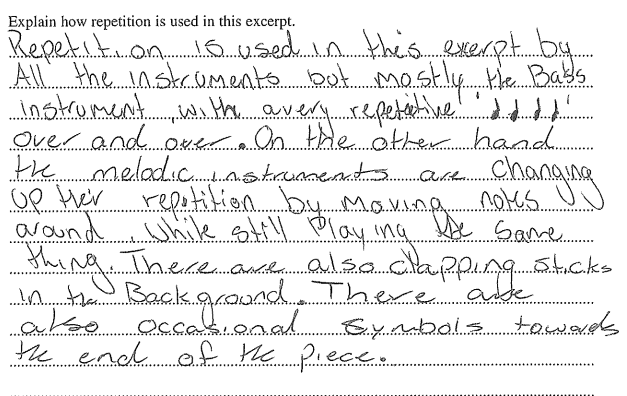 Explain how repetition is used in this excerpt.
Repetition is used in this exerpt by
All the instruments but mostly the Bass
instrument, with a very repetitive '♩ ♩ ♩ ♩'
over and over. On the other hand
the melodic instruments are changing
up their repitition by moving notes
around, while still Playing the same
thing. There are also clapping sticks
in the Background. There are
also occasional symbols towards
the end of the piece.